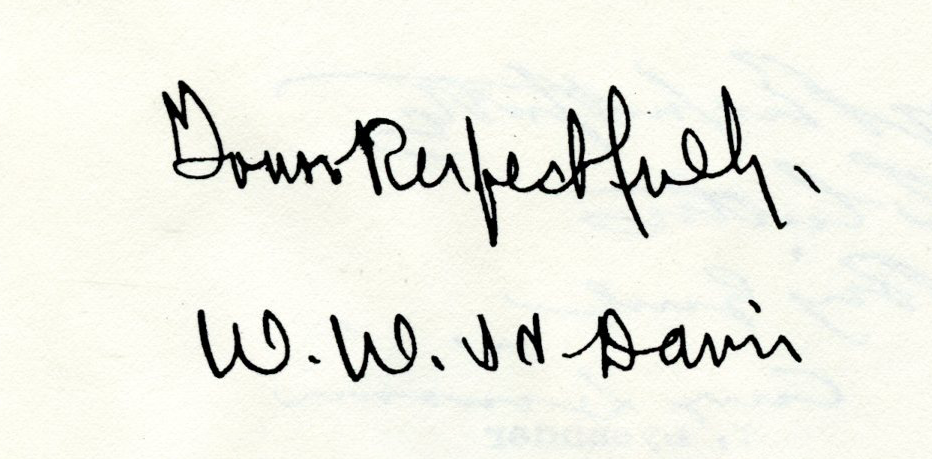 Yours Respectfully,
W. W. H. Davis